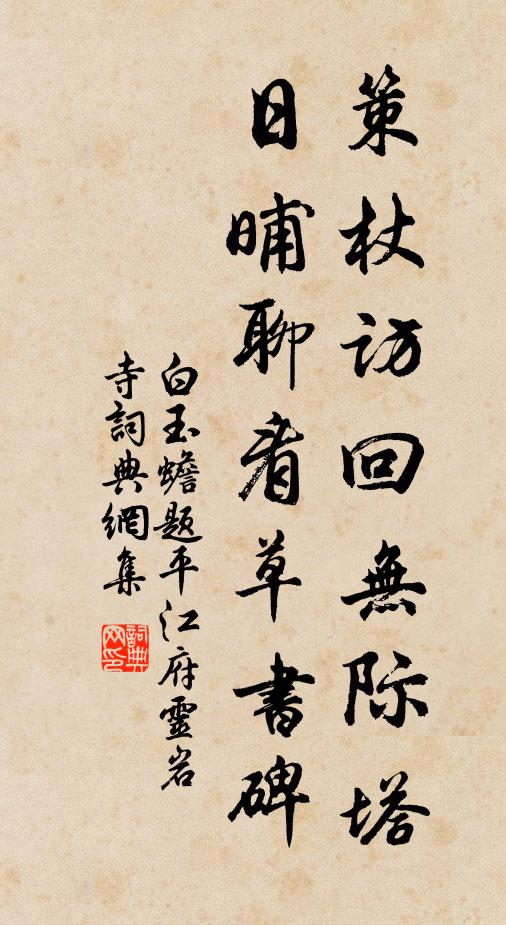 策杖访回無际塔
日晡聊看草書碑
白玉蟾题平江府靈岩
寺詞典網集
詞典
网印